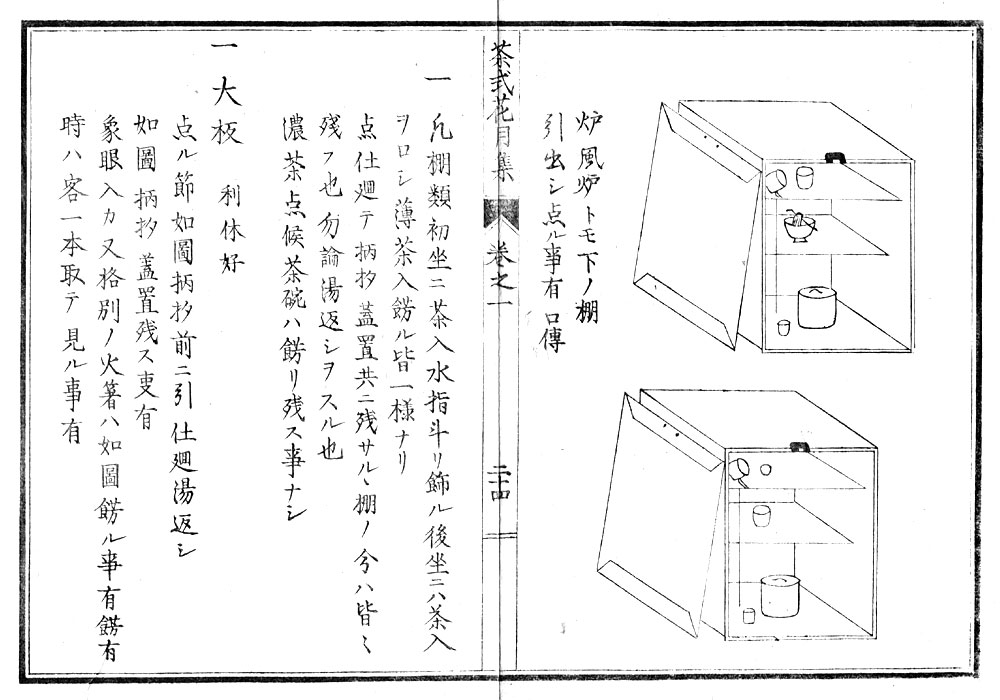 炉風炉トモ下ノ棚
引出シ点ル事有口傳
茶式花月集
巻之一
二十四
一 凡棚類初坐ニ茶入水指斗リ飾ル後坐ニハ茶入
ヲロシ薄茶入餝ル皆一様ナリ
点仕廻テ柄杓蓋置共ニ残サル丶棚ノ分ハ皆〻
残ス也勿論湯返シヲスル也
濃茶点候茶碗ハ餝リ残ス事ナシ
一 大板 利休好
点ル節如圖柄杓前ニ引仕廻湯返シ
如圖柄杓蓋置残ス叓有
象眼入カ又格別ノ火箸ハ如圖餝ル事有餝有
時ハ客一本取テ見ル事有